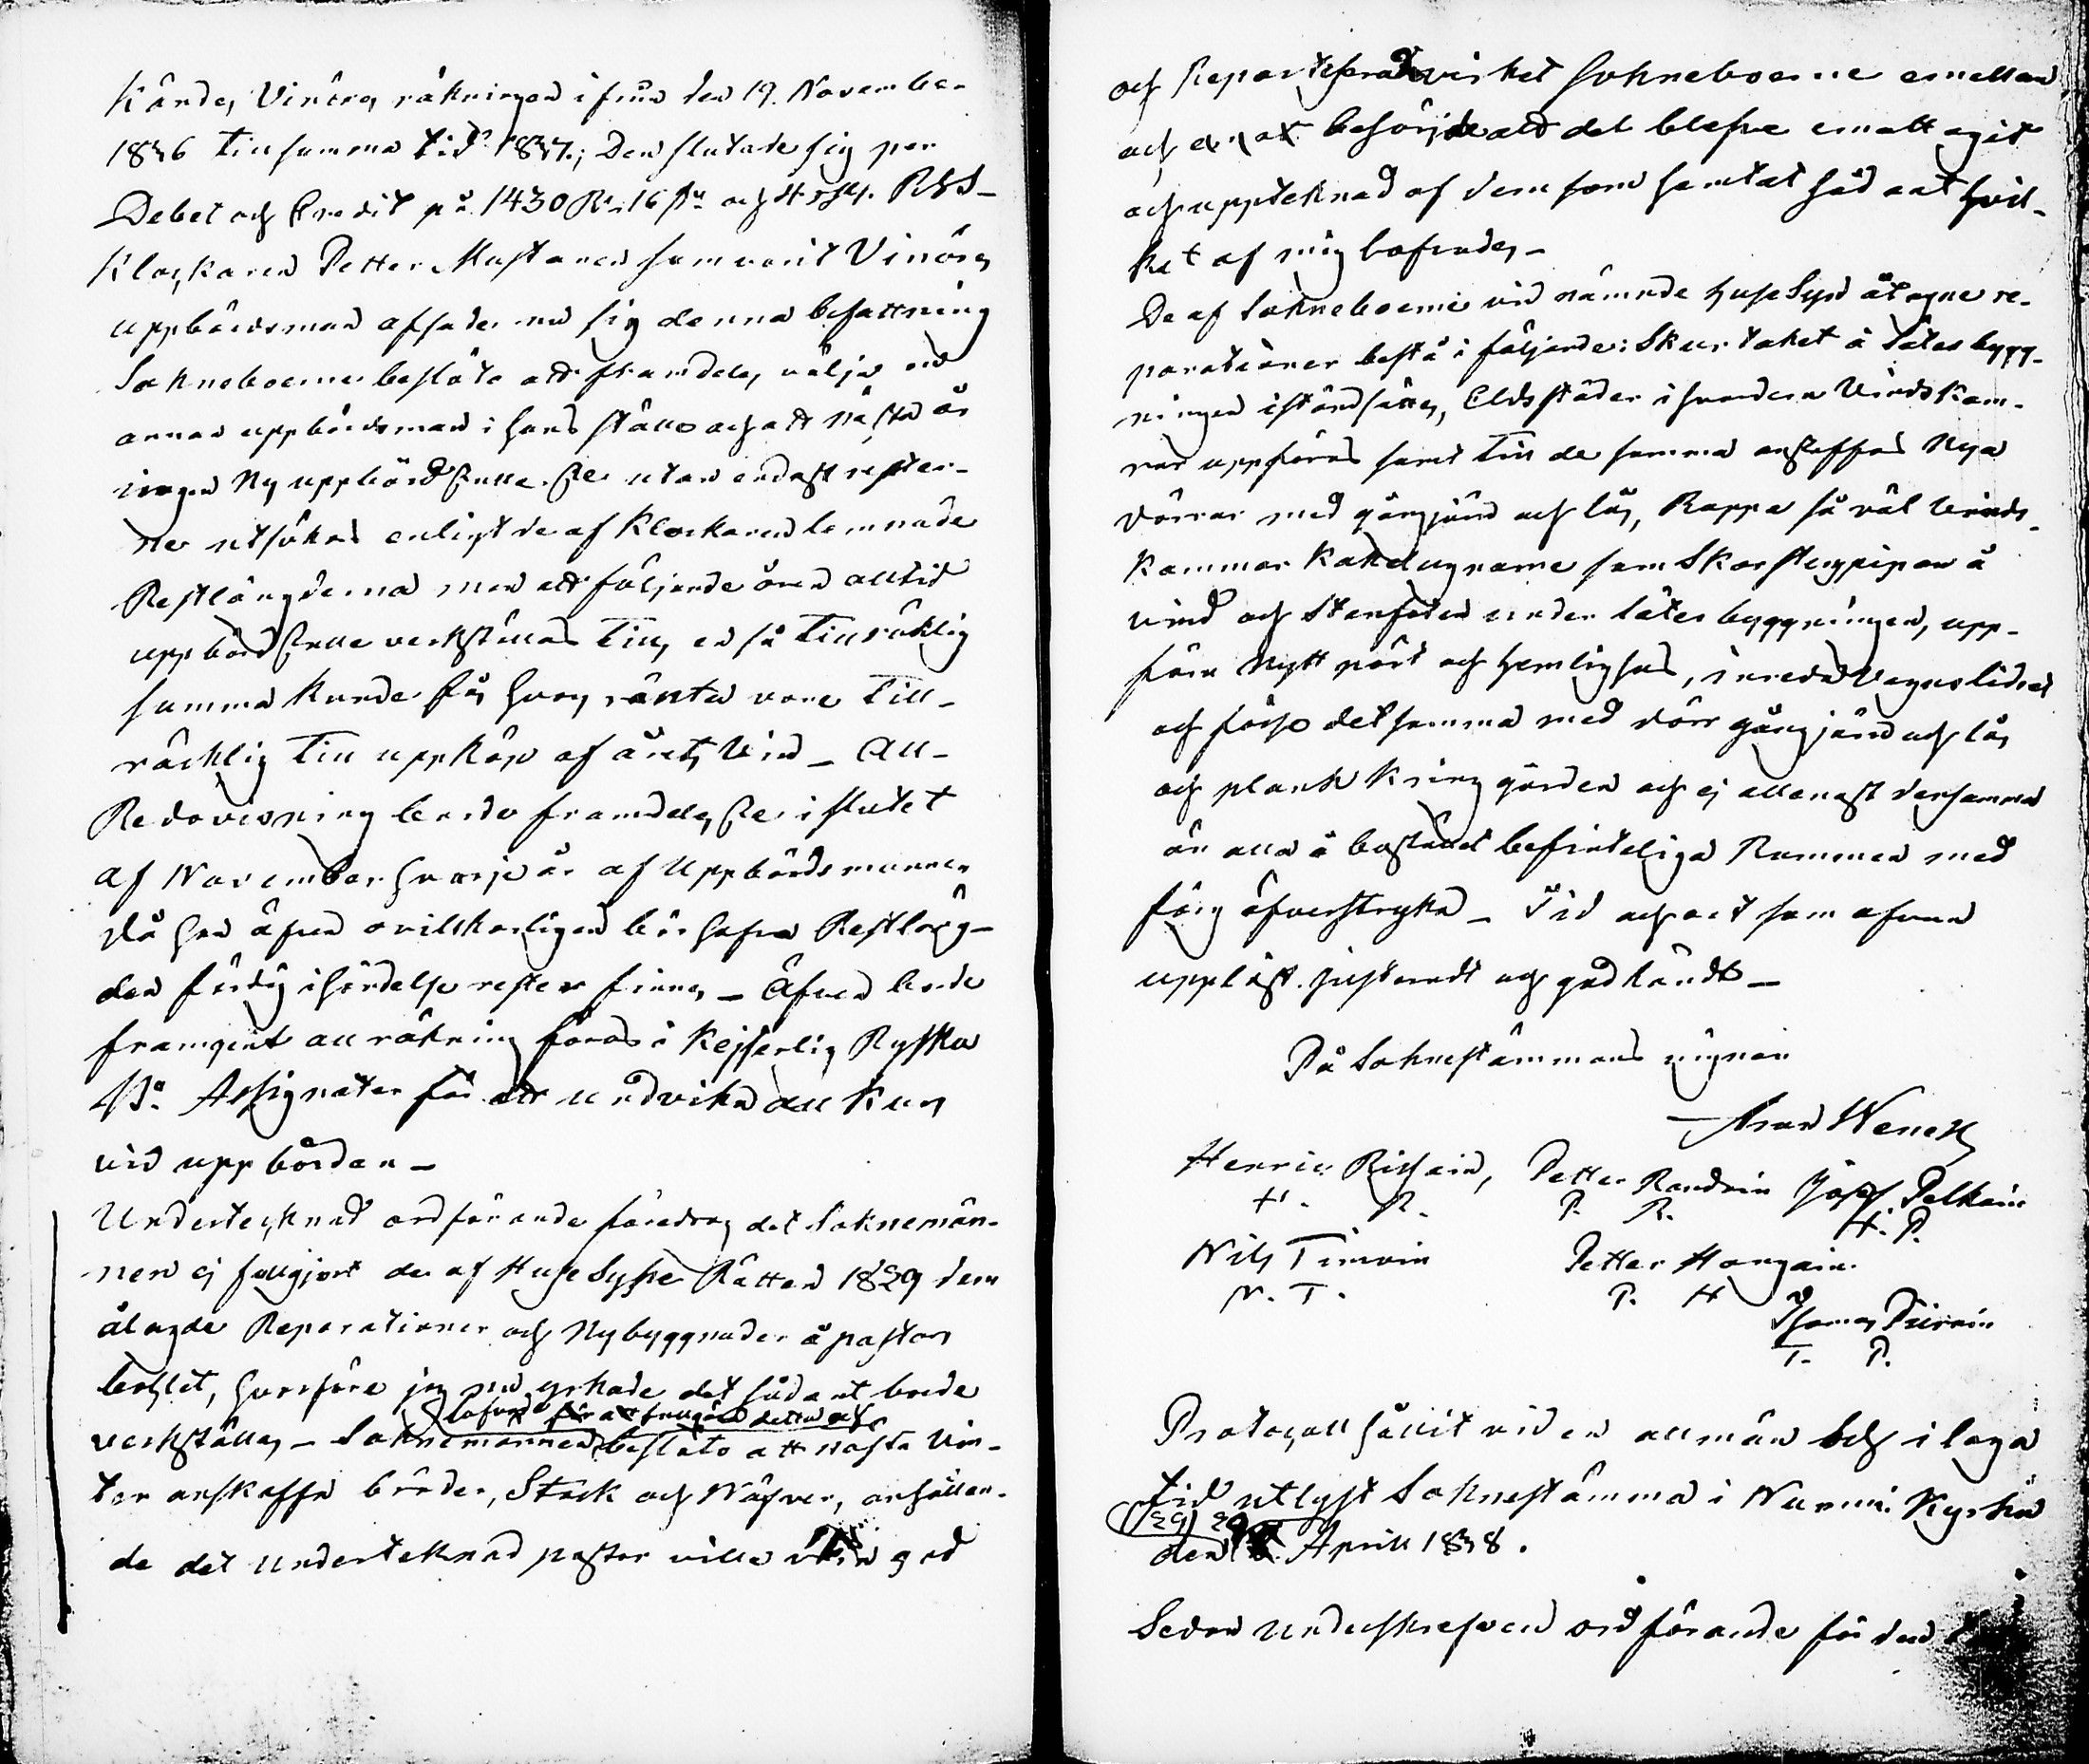 kändes Vinöres räkningen ifrån den 19. November
1836 till samma tid 1837.; Den slutade sig per
Debet och Credit på 1430 R. 16 och 4 R
Klockaren Petter Mustonen som varit Vinöres
uppbördsman afsade nu sig denna befattning
Sokneboerne beslöto att framdeles välja en
annan uppbördsman i hans ställe och att nästa år
ingen Ny uppbörd skulle ske utan endast rester-
ne utsökas enligt de af Klockaren lemnade
Restlängderna men att följande åren alltid
uppbörd skulle verkställas tills en så tillräcklig
summa kunde fås hvars ränta vore till-
räcklig till uppköp af årets Vin - All
Redovisning borde framdeles ske i slutet
af November hvarje år af Uppbördsmannen
då han äfven ovillkorligen bör hafva Restläng-
den färdig ihändelse rester finnes - Äfven borde
framgent all räkning föras i Kejserlig Ryska
Bo. Assignater för att undvika all Kurs
vid uppbörden -
Undertecknad ordförande föredrog det Soknemän-
nen ej fullgjort de af HuseSyhne Rätten 1829 dem
ålagde Reparationer och Nybyggnader å pastors
bohlet, hvarföre jag nu yrkade det sådant borde
verkställas - Soknemännen beslöto att nästa Vin-
ter anskaffa bräder, Stock och Näfver, anhållan-
de det undertecknad pastor ville god
och Repartera virket Sokneboerne emellan
och besörja att det blefve emottagit
och uppteknad af dem som hemtat sådant hvil-
ket af mig lofvades -
De af Sokneboerne vid nämnde huseSyn åtagne re-
parationer bestå i följande: Skurtaket å Sätesbygg-
ningen iståndsättes, Eldstäder i hvardera Vindskam-
rar uppföras samt till de samma anskaffas Nya
dörrar med gångjärn och lås, Rappa så väl Vinds-
kammar Kakelugnarne som Skorstenspipan å
vind och Stenfoten under sätesbyggningen, upp-
föra Nytt pört och hemlighus, inreda Vagnslidret
och förse detsamma med dörr gångjärn och lås
och plank kring gården och ej allenast densamma
än alla å bostället befinteliga Rummen med
färg öfverstryka - Tid och ort som ofvan
uppläst justeradt och godkändt -
På Soknestämmans vägnar
Aron Wenell
Henric Rissain, Petter Randoin Josef Pelkoin
H. R. P. R. H. P.
Nils Timoin Petter Hangain
N. T. P. H
Thomas Piirain
T. P.
Protocoll hållit vid en allmän och i laga
tid utlyst Soknestämma i Nurmis Kyrka
den 29 Aprill 1838.
Sedan Underskrefven ordförande för den